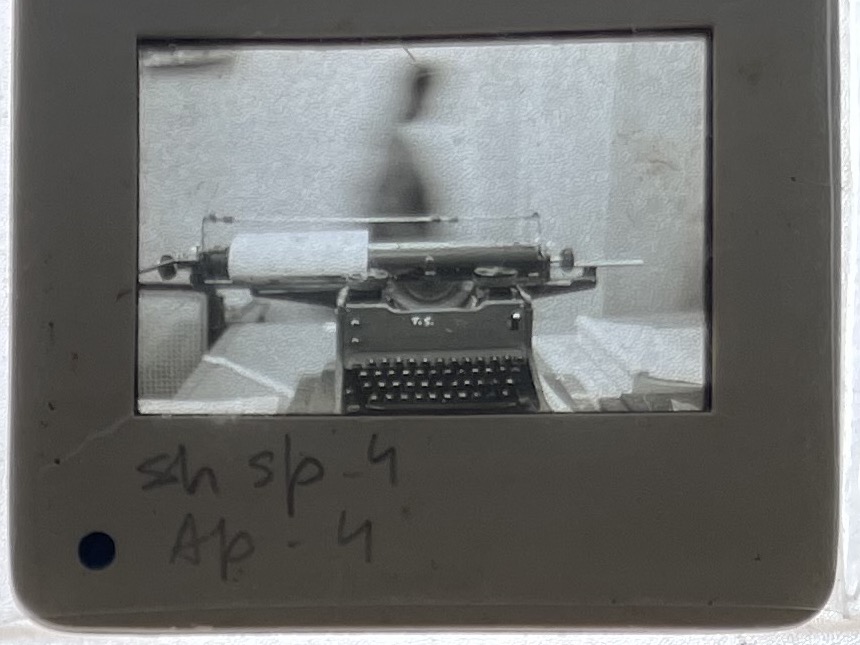 T.S.
sh sp - 4
Ap - 4